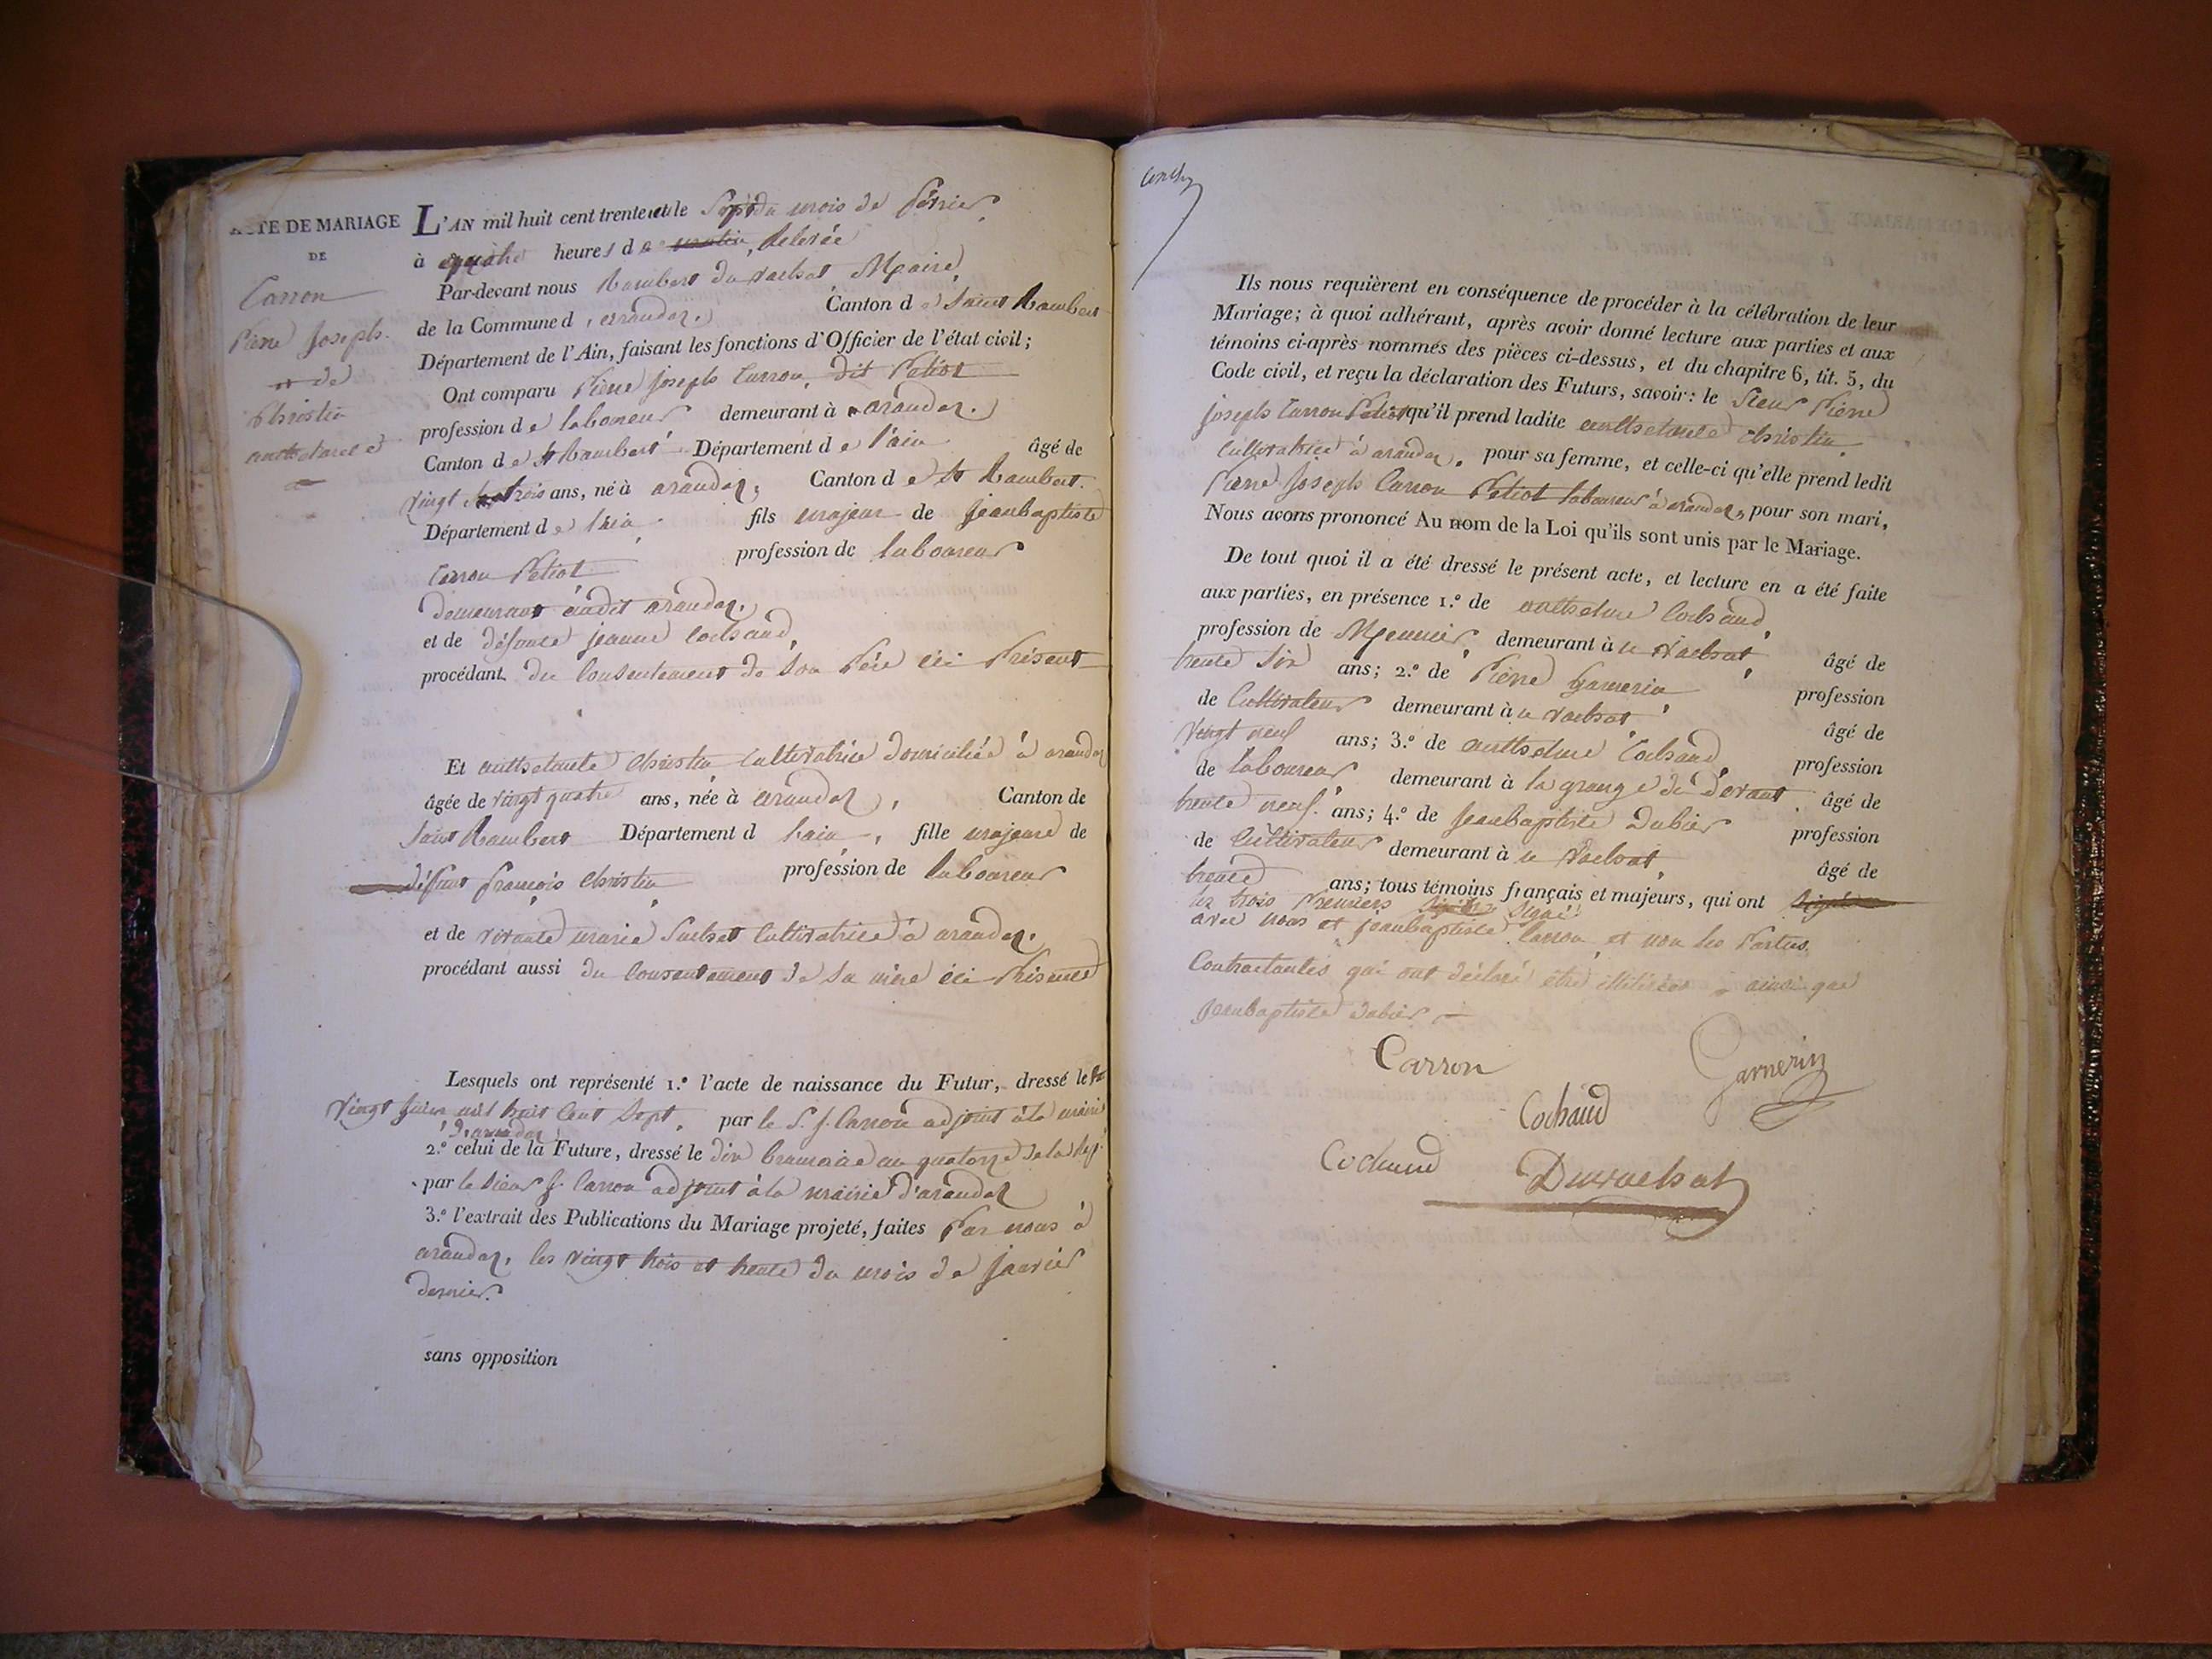 ACTE DE MARIAGE
DE
Carron
Pierre Joseph
et de
Christin
anthelmee
L'AN mil huit cent trente et un le Sept du mois de février
à quatre heures de relevée
Par-devant nous Rambert du vachat Maire,
de la Commune d'arandaz. Canton de Saint Rambert
Département de l'Ain, faisant les fonctions d'Officier de l'état civil;
Ont comparu Pierre joseph Carron, dit Petiot
profession de laboureur demeurant à arandaz.
Canton de St Rambert Département de l'ain âgé de
vingt trois ans, né à arandaz, Canton de St Rambert.
Département de l'ain. fils majeur de jeanbaptiste
Carron Petiot profession de laboureur
demeurant audit arandaz,
et de défunte jeanne Cochaud,
procédant du Consentement de son Père ici Présent
Et anthelmete Christin Cultivatrice domiciliée à arandaz
âgée de vingt quatre ans, née à arandaz, Canton de
Saint Rambert Département d l'ain, fille majeure de
déffunt françois Christin profession de laboureur
et de vivante marie Suchet Cultivatrice à arandaz.
procédant aussi du Consentement de sa mère ici Présente
Lesquels ont représenté 1.º l'acte de naissance du Futur, dressé le
vingt juin mil huit Cent Sept, par le S. j. Carron adjoint à la mairie
d'arandaz
2.º celui de la Future, dressé le dix brumaire an quatorze de la Rep.
par le Sieur j. Carron adjoint à la mairie d'arandaz
3.º l'extrait des Publications du Mariage projeté, faites Par nous à
arandaz, les vingt trois et trente du mois de janvier
dernier.
sans opposition
Ils nous requièrent en conséquence de procéder à la célébration de leur
Mariage; à quoi adhérant, après avoir donné lecture aux parties et aux
témoins ci-après nommés des pièces ci-dessus, et du chapitre 6, tit. 5, du
Code civil, et reçu la déclaration des Futurs, savoir: le Sieur Pierre
joseph Carron Petiot qu'il prend ladite anthelmete Christin
Cultivatrice à arandaz. pour sa femme, et celle-ci qu'elle prend ledit
Pierre Joseph Carron Petiot laboureur à arandaz, pour son mari,
Nous avons prononcé Au nom de la Loi qu'ils sont unis par le Mariage.
De tout quoi il a été dressé le présent acte, et lecture en a été faite
aux parties, en présence 1.º de anthelme Cochaud
profession de Meunier, demeurant à u vachat, âgé de
trente Six ans; 2.º de Pierre Garnerin profession
de Cultivateur demeurant à u vachat, âgé de
vingt neuf ans; 3.º de anthelme Cochaud, profession
de laboureur demeurant à la grange de Dorvant, âgé de
trente neuf. ans; 4.º de Jeanbaptiste Dubier profession
de Cultivateur demeurant à u vachat, âgé de
trente ans; tous témoins français et majeurs, qui ont
les trois Premiers Signé
avec nous et jeanbaptiste Carron, et non les Parties
Contractantes qui ont déclaré être illitérées ainsi que
Jeanbaptiste Dubier
Carron
Garnerin
Cochaud
Cochaud
Duvachat